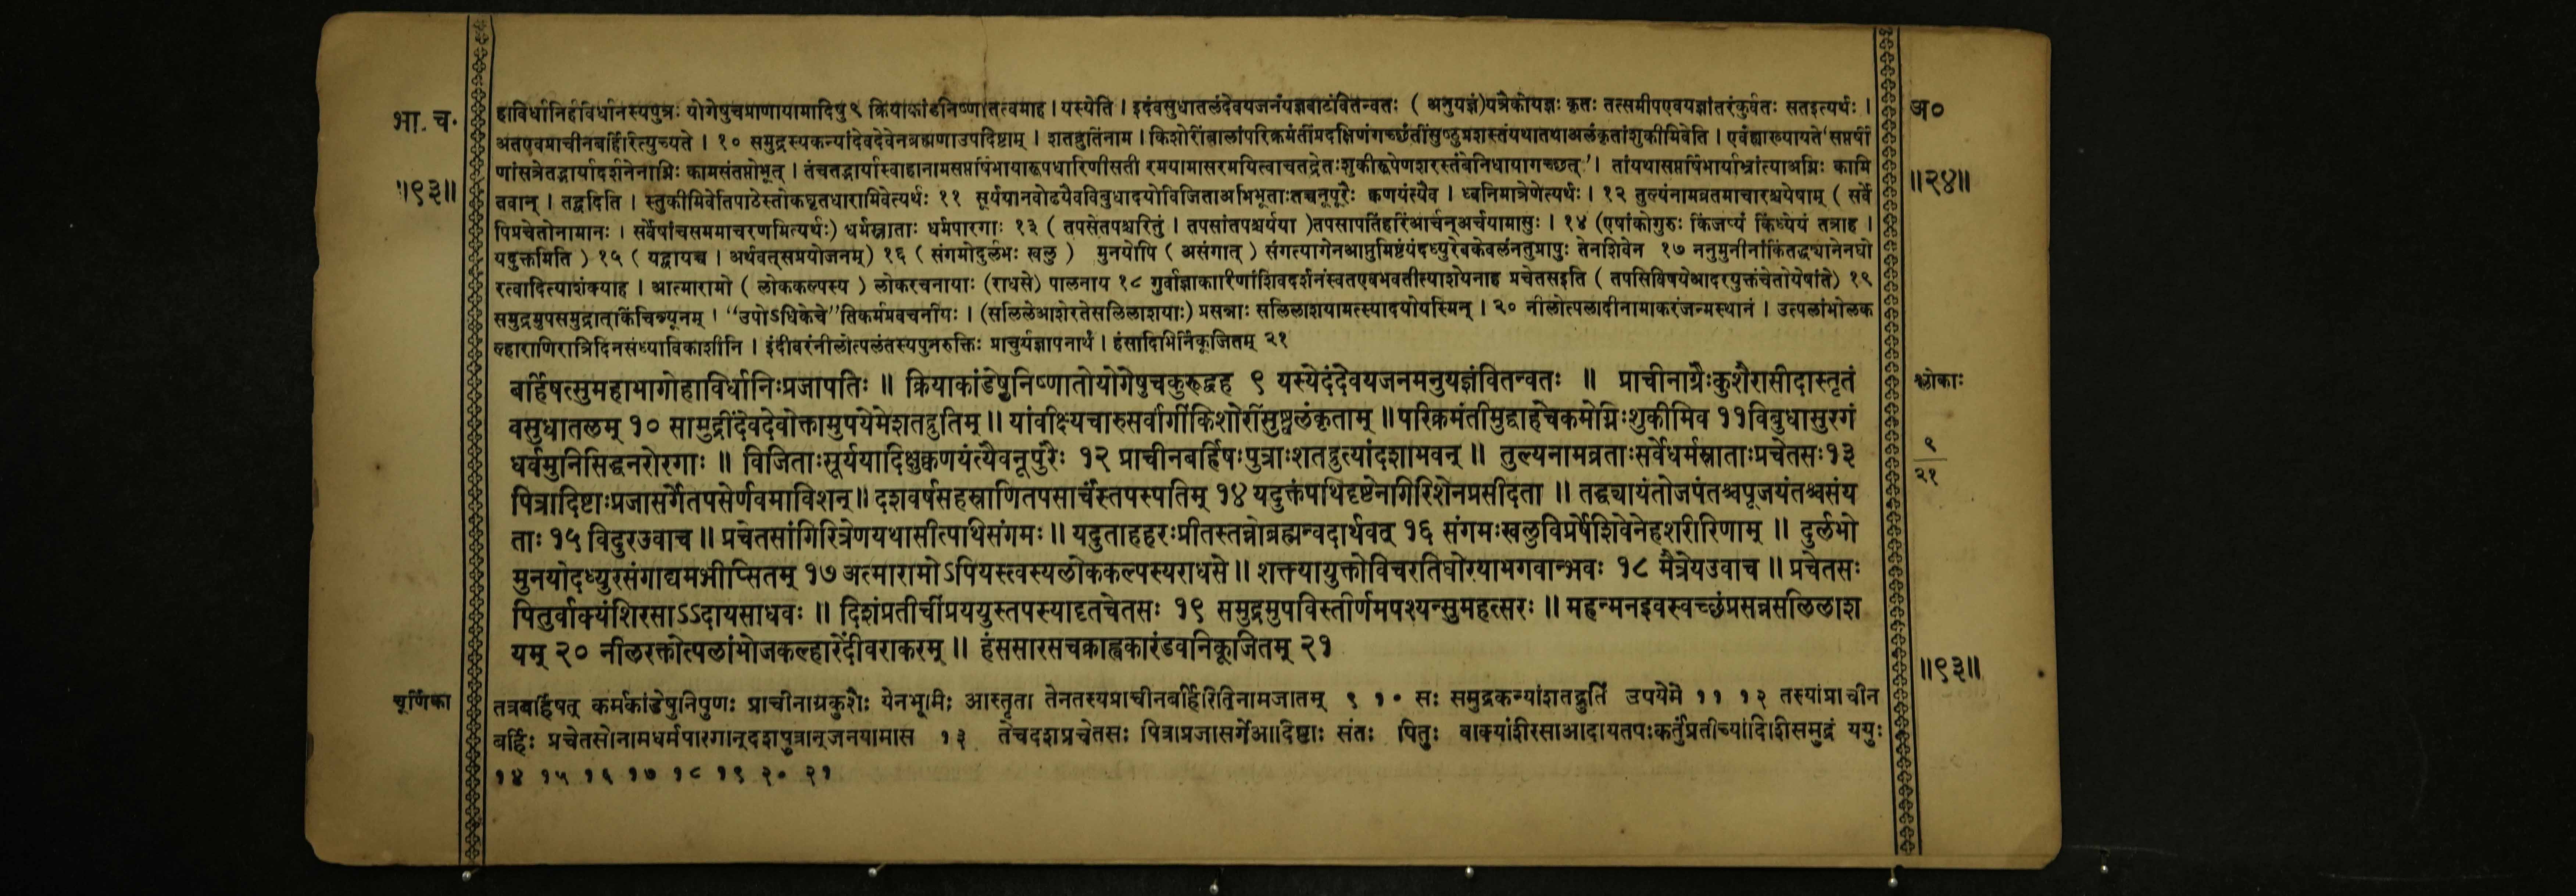 भा. च.
॥९३॥
हाविर्धानिर्हविर्धानस्यपुत्रः योगेषुचप्राणायामादिषु९ क्रियाकांडनिष्णातत्वमाह । यस्येति । इदंवसुधातलंदेवयजनंयज्ञवाटंवितन्वतः ( अनुयज्ञं)यत्रैकोयज्ञः कृतः तत्समीपएवयज्ञांतरंकुर्वतः सतइत्यर्थः ।
अतएवप्राचीनबर्हिरित्युच्यते । १० समुद्रस्यकन्यांदेवदेवेनब्रह्मणाउपदिष्टाम् । शतद्रुतिंनाम । किशोरींबालांपरिक्रमंतींप्रदक्षिणंगच्छंतींसुष्ठुप्रशस्तंयथातथाअलंकृतांशुकीमिवेति । एवंह्याख्यायते‘सप्तर्षी
णांसत्रेतद्भार्यादर्शनेनाग्निः कामसंतप्तोभूत् । तंचतद्भार्यास्वाहानामसप्तर्षिभार्यारूपधारिणीसती रमयामासरमयित्वाचतद्रेतःशुकीरूपेणशरस्तंबेनिधायागच्छत्’। तांयथासप्तर्षिभार्याभ्रांत्याअग्निः कामि
तवान् । तद्वदिति । स्तुकीमिवेतिपाठेस्तोकघृतधारामिवेत्यर्थः ११ सूर्ययानवोढयैवविबुधादयोविजिताअभिभूताःतच्चनूपूरैः क्वणयंत्यैव । ध्वनिमात्रेणेत्यर्थः । १२ तुल्यंनामव्रतमाचारश्चयेषाम् ( सर्वे
पिप्रचेतोनामानः । सर्वेषांचसममाचरणमित्यर्थः) धर्मस्नाताः धर्मपारगाः १३ ( तपसेतपश्चरितुं । तपसांतपश्चर्यया )तपसापतिंहरिंआर्चन्अर्चयामासुः । १४ (एषांकोगुरुः किंजप्यं किंध्येयं तत्राह ।
यदुक्तमिति ) १५ ( यद्वायच्च । अर्थवत्सप्रयोजनम्) १६ ( संगमोदुर्लभः खलु ) मुनयोपि ( असंगात् ) संगत्यागेनआप्तुमिष्टंयंदध्युरेवकेवलंनतुप्रापुः तेनशिवेन १७ ननुमुनीनांकिंतद्ध्यानेनघो
रत्वादित्याशंक्याह । आत्मारामो ( लोककल्पस्य ) लोकरचनायाः (राधसे) पालनाय १८ गुर्वाज्ञाकारिणांशिवदर्शनंस्वतएवभवतीत्याशयेनाह प्रचेतसइति ( तपसिविषयेआदरयुक्तंचेतोयेषांते) १९
समुद्रमुपसमुद्रात्किंचिन्न्यूनम् । “उपोऽधिकेचे”तिकर्मप्रवचनीयः । (सलिलेआशेरतेसलिलाशयाः) प्रसन्नाः सलिलाशयामत्स्यादयोयस्मिन् । २० नीलोत्पलादीनामाकरंजन्मस्थानं । उत्पलांभोजक
ल्हाराणिरात्रिदिनसंध्याविकाशीनि । इंदीवरंनीलोत्पलंतस्यपुनरुक्तिः प्राचुर्यज्ञापनार्थं । हंसादिभिर्निकूजितम् २१
बर्हिषत्सुमहाभागोहाविर्धानिःप्रजापतिः ॥ क्रियाकांडेषुनिष्णातोयोगेषुचकुरूद्वह ९ यस्येदंदेवयजनमनुयज्ञंवितन्वतः ॥ प्राचीनाग्रैःकुशैरासीदास्तृतं
वसुधातलम् १० सामुद्रींदेवदेवोक्तामुपयेमेशतद्रुतिम् ॥ यांवीक्ष्यचारुसर्वांगींकिशोरींसुष्ठ्वलंकृताम् ॥ परिक्रमंतीमुद्वाहेचकमोग्निःशुकीमिव ११विबुधासुरगं
धर्वमुनिसिद्धनरोरगाः ॥ विजिताःसूर्ययादिक्षुक्वणयंत्यैवनूपुरैः १२ प्राचीनबर्हिषःपुत्राःशतद्रुत्यांदशाभवन् ॥ तुल्यनामव्रताःसर्वेधर्मस्नाताःप्रचेतसः१३
पित्रादिष्टाःप्रजासर्गेतपसेर्णवमाविशन् ॥ दशवर्षसहस्राणितपसार्चंस्तपस्पतिम् १४ यदुक्तंपथिदृष्टेनगिरिशेनप्रसीदता ॥ तद्ध्यायंतोजपंतश्चपूजयंतश्चसंय
ताः १५ विदुरउवाच ॥ प्रचेतसांगिरित्रेणयथासीत्पथिसंगमः ॥ यदुताहहरःप्रीतस्तन्नोब्रह्मन्वदार्थवत् १६ संगमःखलुविप्रर्षेशिवेनेहशरीरिणाम् ॥ दुर्लभो
मुनयोदध्युरसंगाद्यमभीप्सितम् १७ अत्मारामोऽपियस्त्वस्यलोककल्पस्यराधसे ॥ शक्त्यायुक्तोविचरतिघोरयाभगवान्भवः १८ मैत्रेयउवाच ॥ प्रचेतसः
पितुर्वाक्यंशिरसाऽऽदायसाधवः ॥ दिशंप्रतीचींप्रययुस्तपस्यादृतचेतसः १९ समुद्रमुपविस्तीर्णमपश्यन्सुमहत्सरः ॥ महन्मनइवस्वच्छंप्रसन्नसलिलाश
यम् २० नीलरक्तोत्पलांभोजकल्हारेंदीवराकरम् ॥ हंससारसचक्राह्वकारंडवनिकूजितम् २१
चूर्णिका
तत्रबर्हिषत् कर्मकांडेषुनिपुणः प्राचीनाग्रकुशैः येनभूमिः आस्तृता तेनतस्यप्राचीनबर्हिरितिनामजातम् ९ १० सः समुद्रकन्यांशतद्रुतिं उपयेमे ११ १२ तस्यांप्राचीन
बर्हिः प्रचेतसोनामधर्मपारगान्दशपुत्रान्जनयामास १३ तेचदशप्रचेतसः पित्राप्रजासर्गेआदिष्टाः संतः पितुः वाक्यांशिरसाआदायतपःकर्तुंप्रतीच्यांदिशीसमुद्रं ययुः
१४ १५ १६ १७ १८ १९ २० २१
अ०
॥२४॥
श्लोकाः
९
२१
॥९३॥